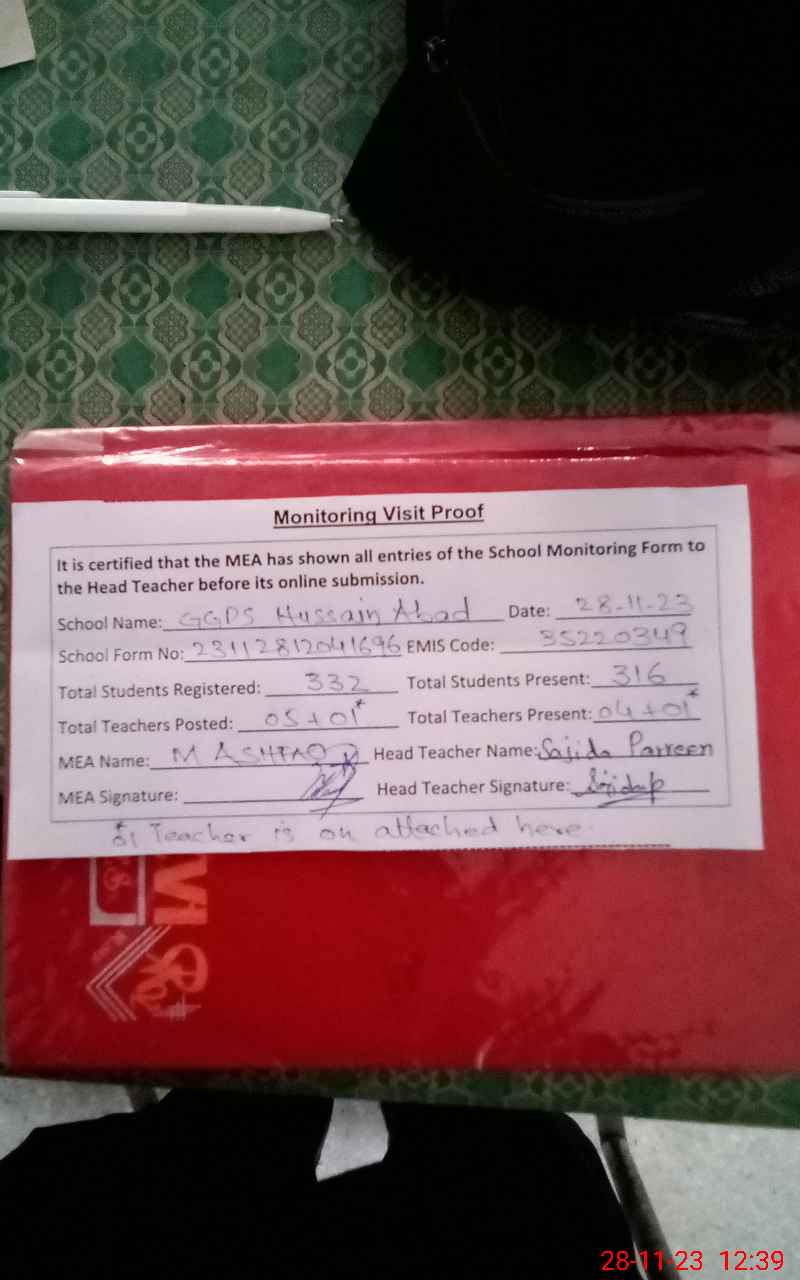 Monitoring Visit Proof
It is certified that the MEA has shown all entries of the School Monitoring Form to
the Head Teacher before its online submission.
School Name: GGPS Hussain Abad Date: 28-11-23
School Form No: 23112812041696 EMIS Code: 35220349
Total Students Registered: 332 Total Students Present: 316
Total Teachers Posted: 05 + 01* Total Teachers Present: 04 + 01*
MEA Name: M ASHFAQ Head Teacher Name: Sajida Parveen
MEA Signature: Head Teacher Signature: Sajida P
* 01 Teacher is on attached here.
28-11-23 12:39